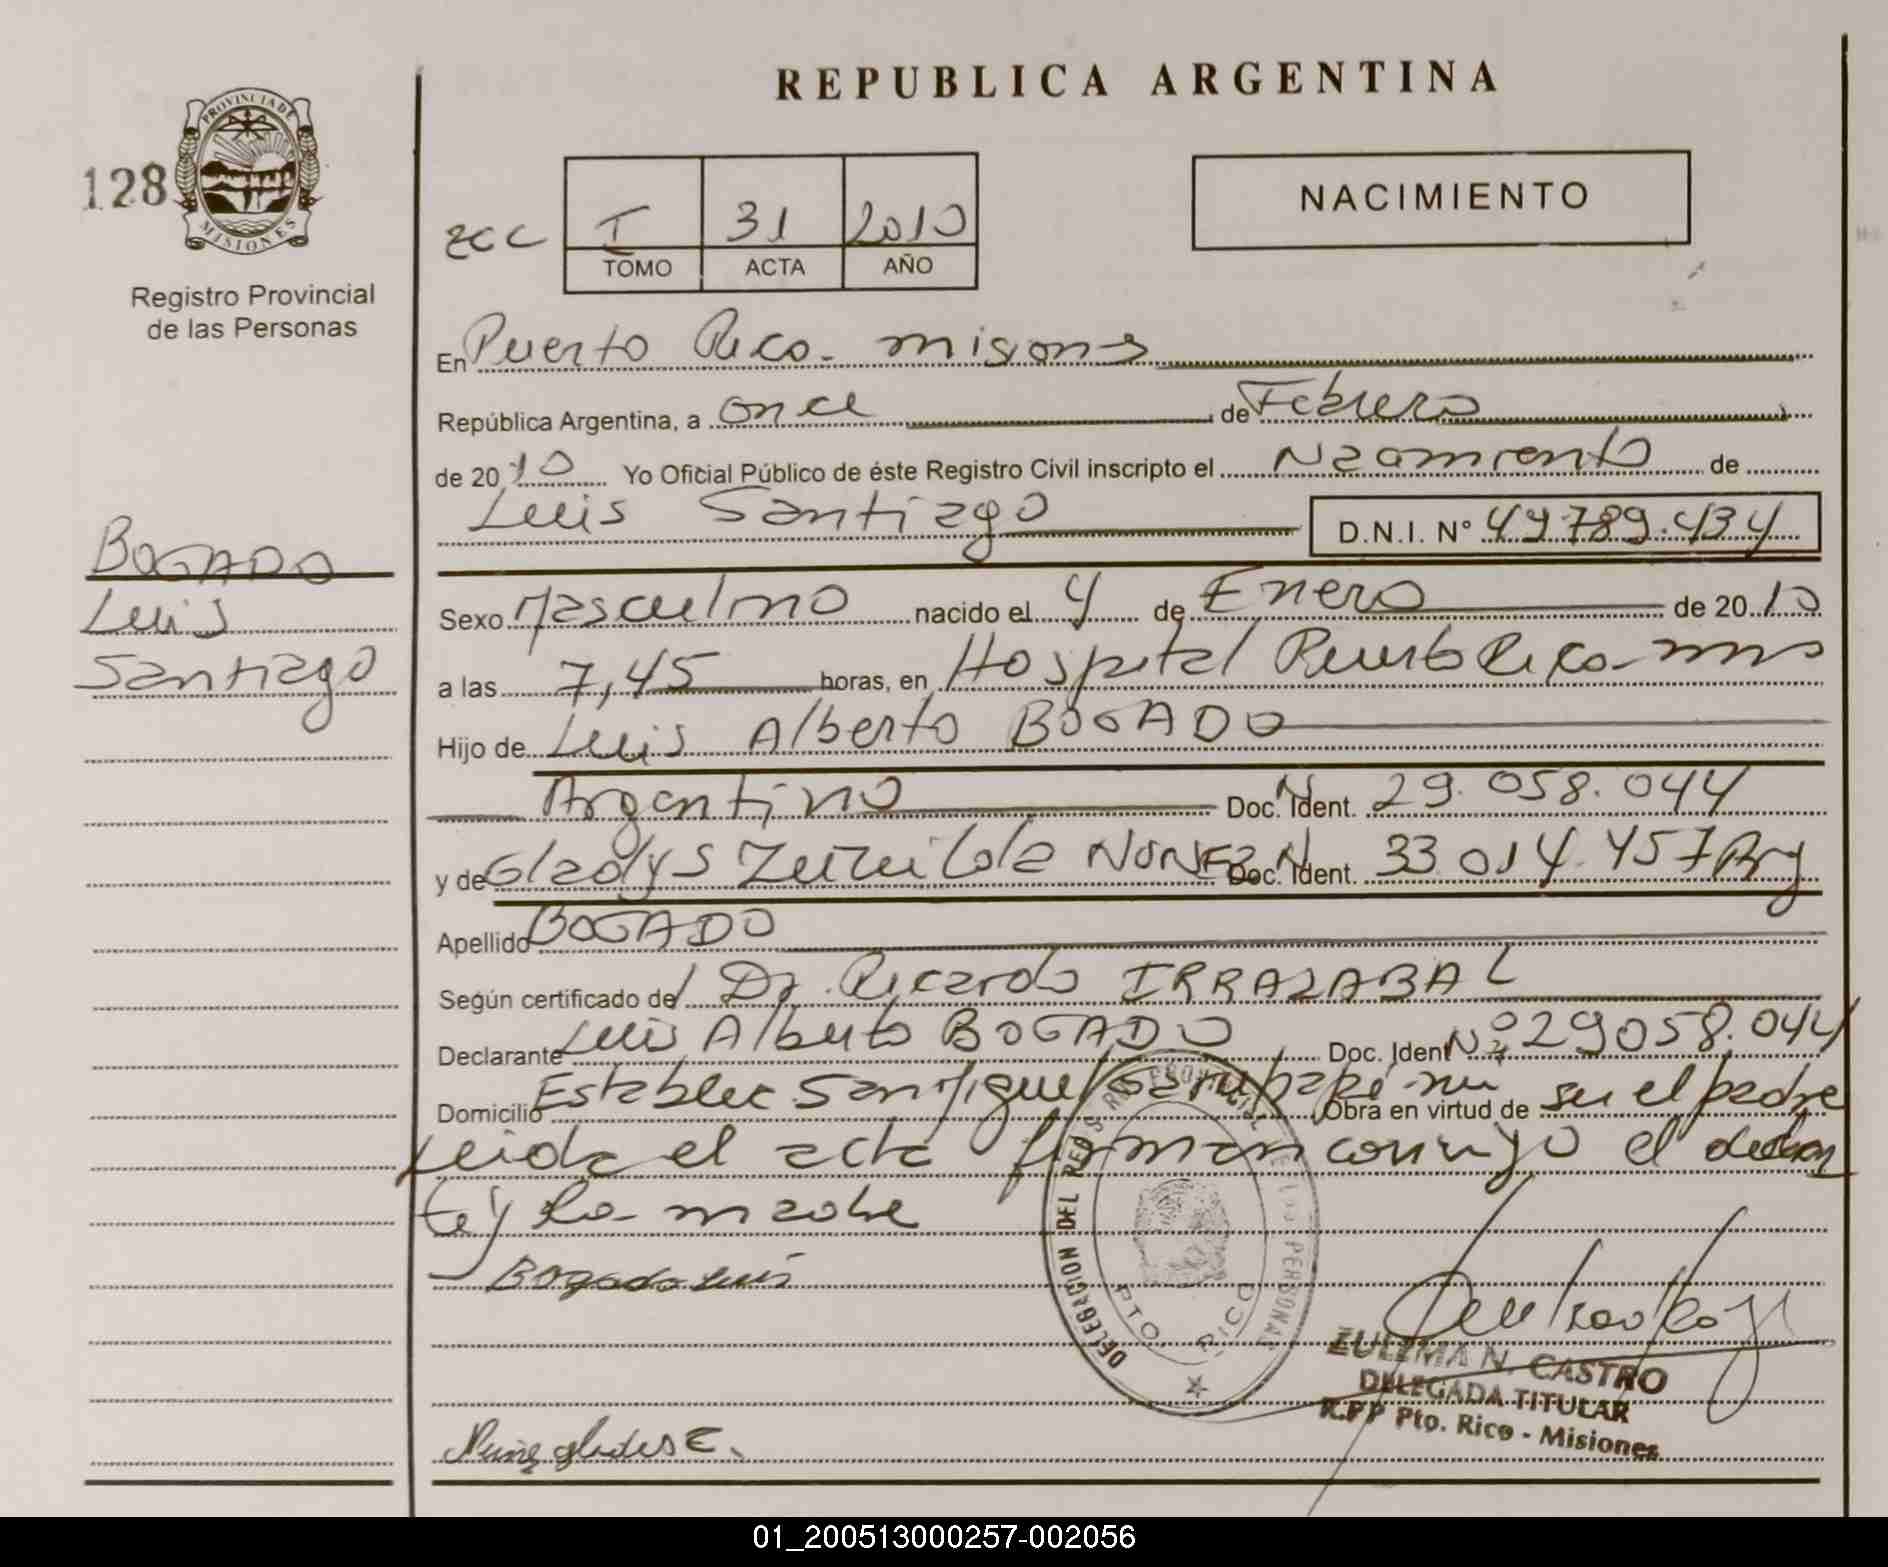 REPUBLICA ARGENTINA
128
PROVINCIA DE
MISIONES
Registro Provincial
de las Personas
NACIMIENTO
I 31 2010
TOMO ACTA AÑO
En Puerto Rico - misiones
República Argentina, a once de Febrero
de 2010 Yo Oficial Público de éste Registro Civil inscripto el Nacimiento de
Luis Santiago D.N.I. Nº 49.789.434
BOGADO
Luis
Santiago
Sexo Masculino nacido el 4 de Enero de 2010
a las 7,45 horas, en Hospital Puerto Rico - mns
Hijo de Luis Alberto BOGADO
Argentino Doc. Ident. N 29.058.044
y de Gladys NUNEZ Doc. Ident. N 33.014.457 Arg
Apellido BOGADO
Según certificado del Dr. Ricardo IRRAZABAL
Declarante Luis Alberto BOGADO Doc. Ident Nº 29058.044
Domicilio Establec. San Miguel Obra en virtud de ser el padre
Leida el acta firman conmigo el declaran
te y la madre
Bogado Luis
DELEGACION DEL REG. PROVINCIAL DE LAS PERSONAS
PTO. RICO
ZULEMA N. CASTRO
DELEGADA TITULAR
R.P.P Pto. Rico - Misiones
01_200513000257-002056